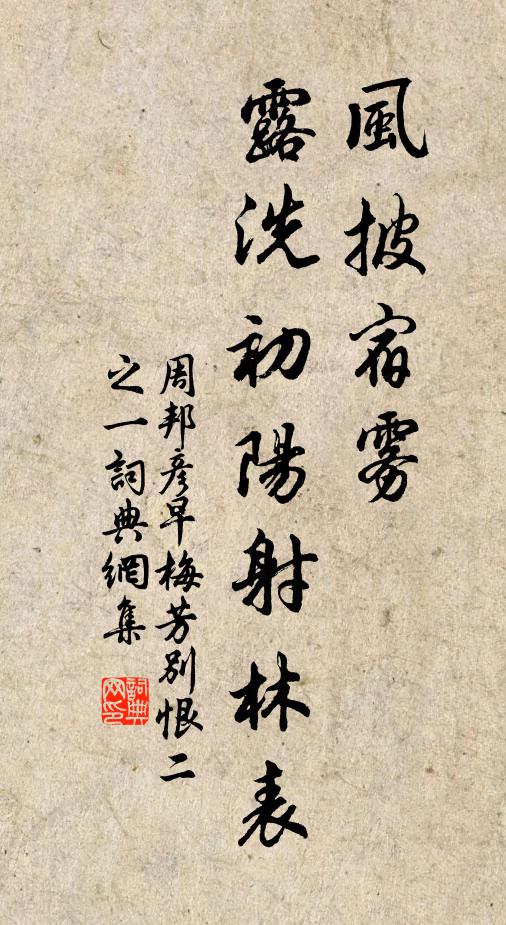 風披宿雾
露洗初陽射林表
周邦彦早梅芳别恨二
之一詞典網集
詞典
网印